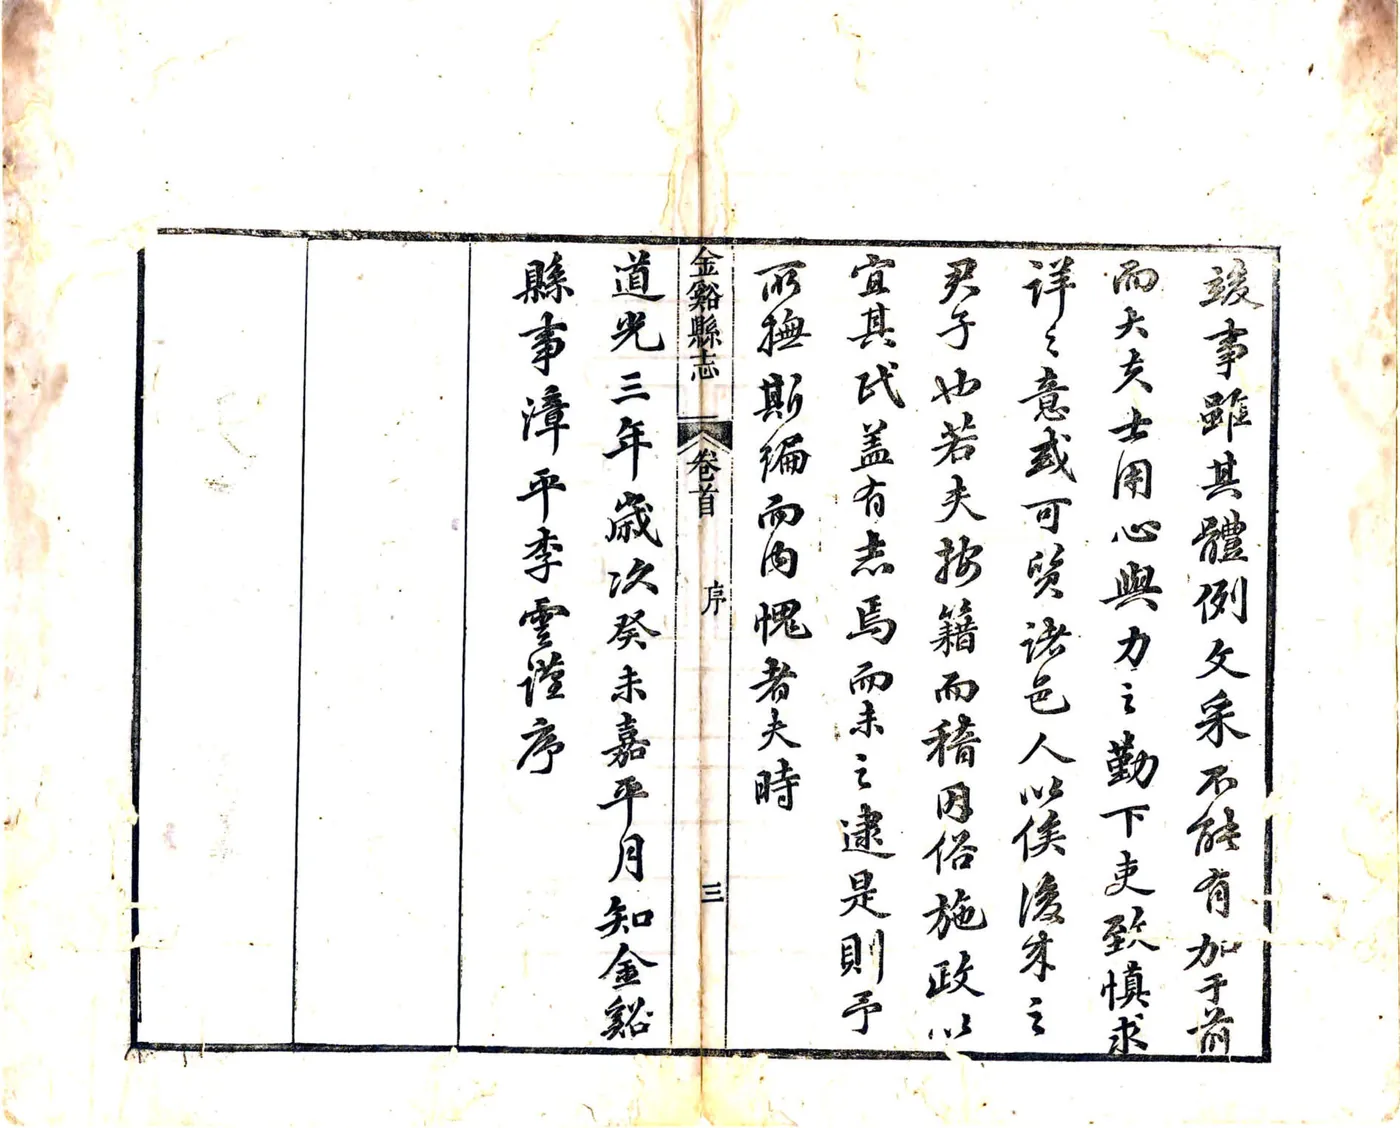 竣事雖其體例文采不能有加于前
而大夫士用心與力之勤下吏致慎求
詳之意或可質諸邑人以俟後來之
君子也若夫按籍而稽因俗施政以
宜其民蓋有志焉而未之逮是則予
所撫斯編而內愧者夫時
金谿縣志
卷首
序
三
道光三年歲次癸未嘉平月知金谿
縣事漳平李雲謹序